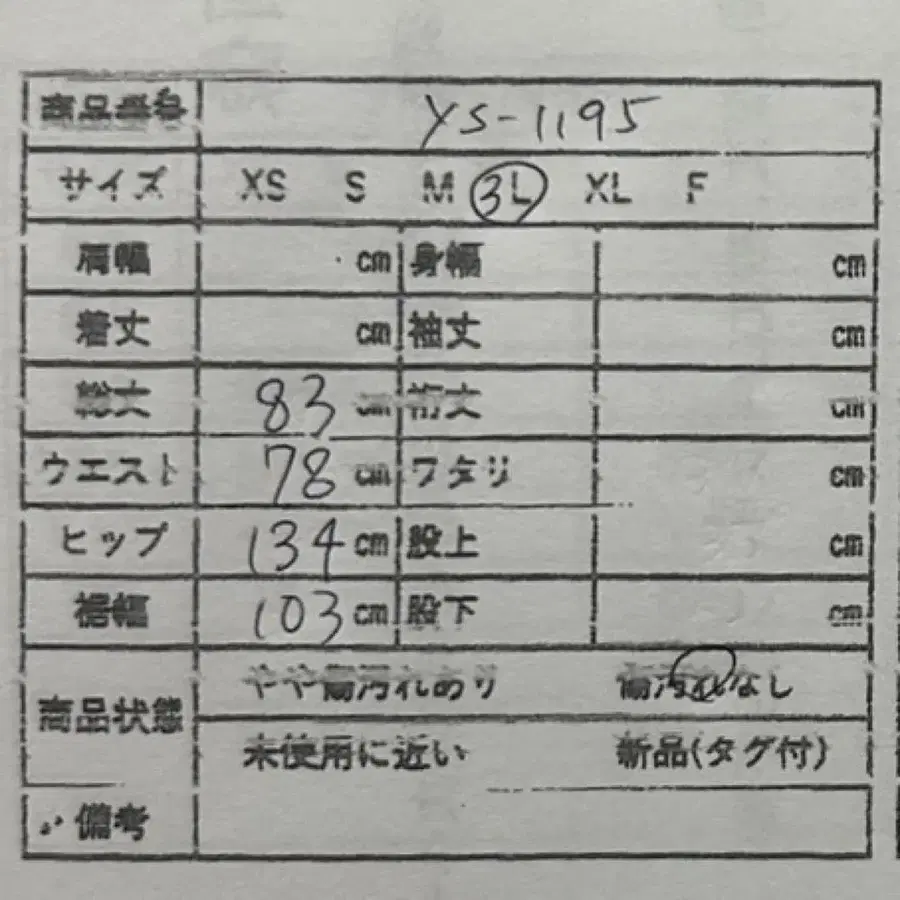 商品番号 YS-1195
サイズ XS S M 3L XL F
肩幅 cm 身幅 cm
着丈 cm 袖丈 cm
総丈 83 cm 裄丈 cm
ウエスト 78 cm ワタリ cm
ヒップ 134 cm 股上 cm
裾幅 103 cm 股下 cm
商品状態 やや傷汚れあり 傷汚れなし
未使用に近い 新品(タグ付)
備考